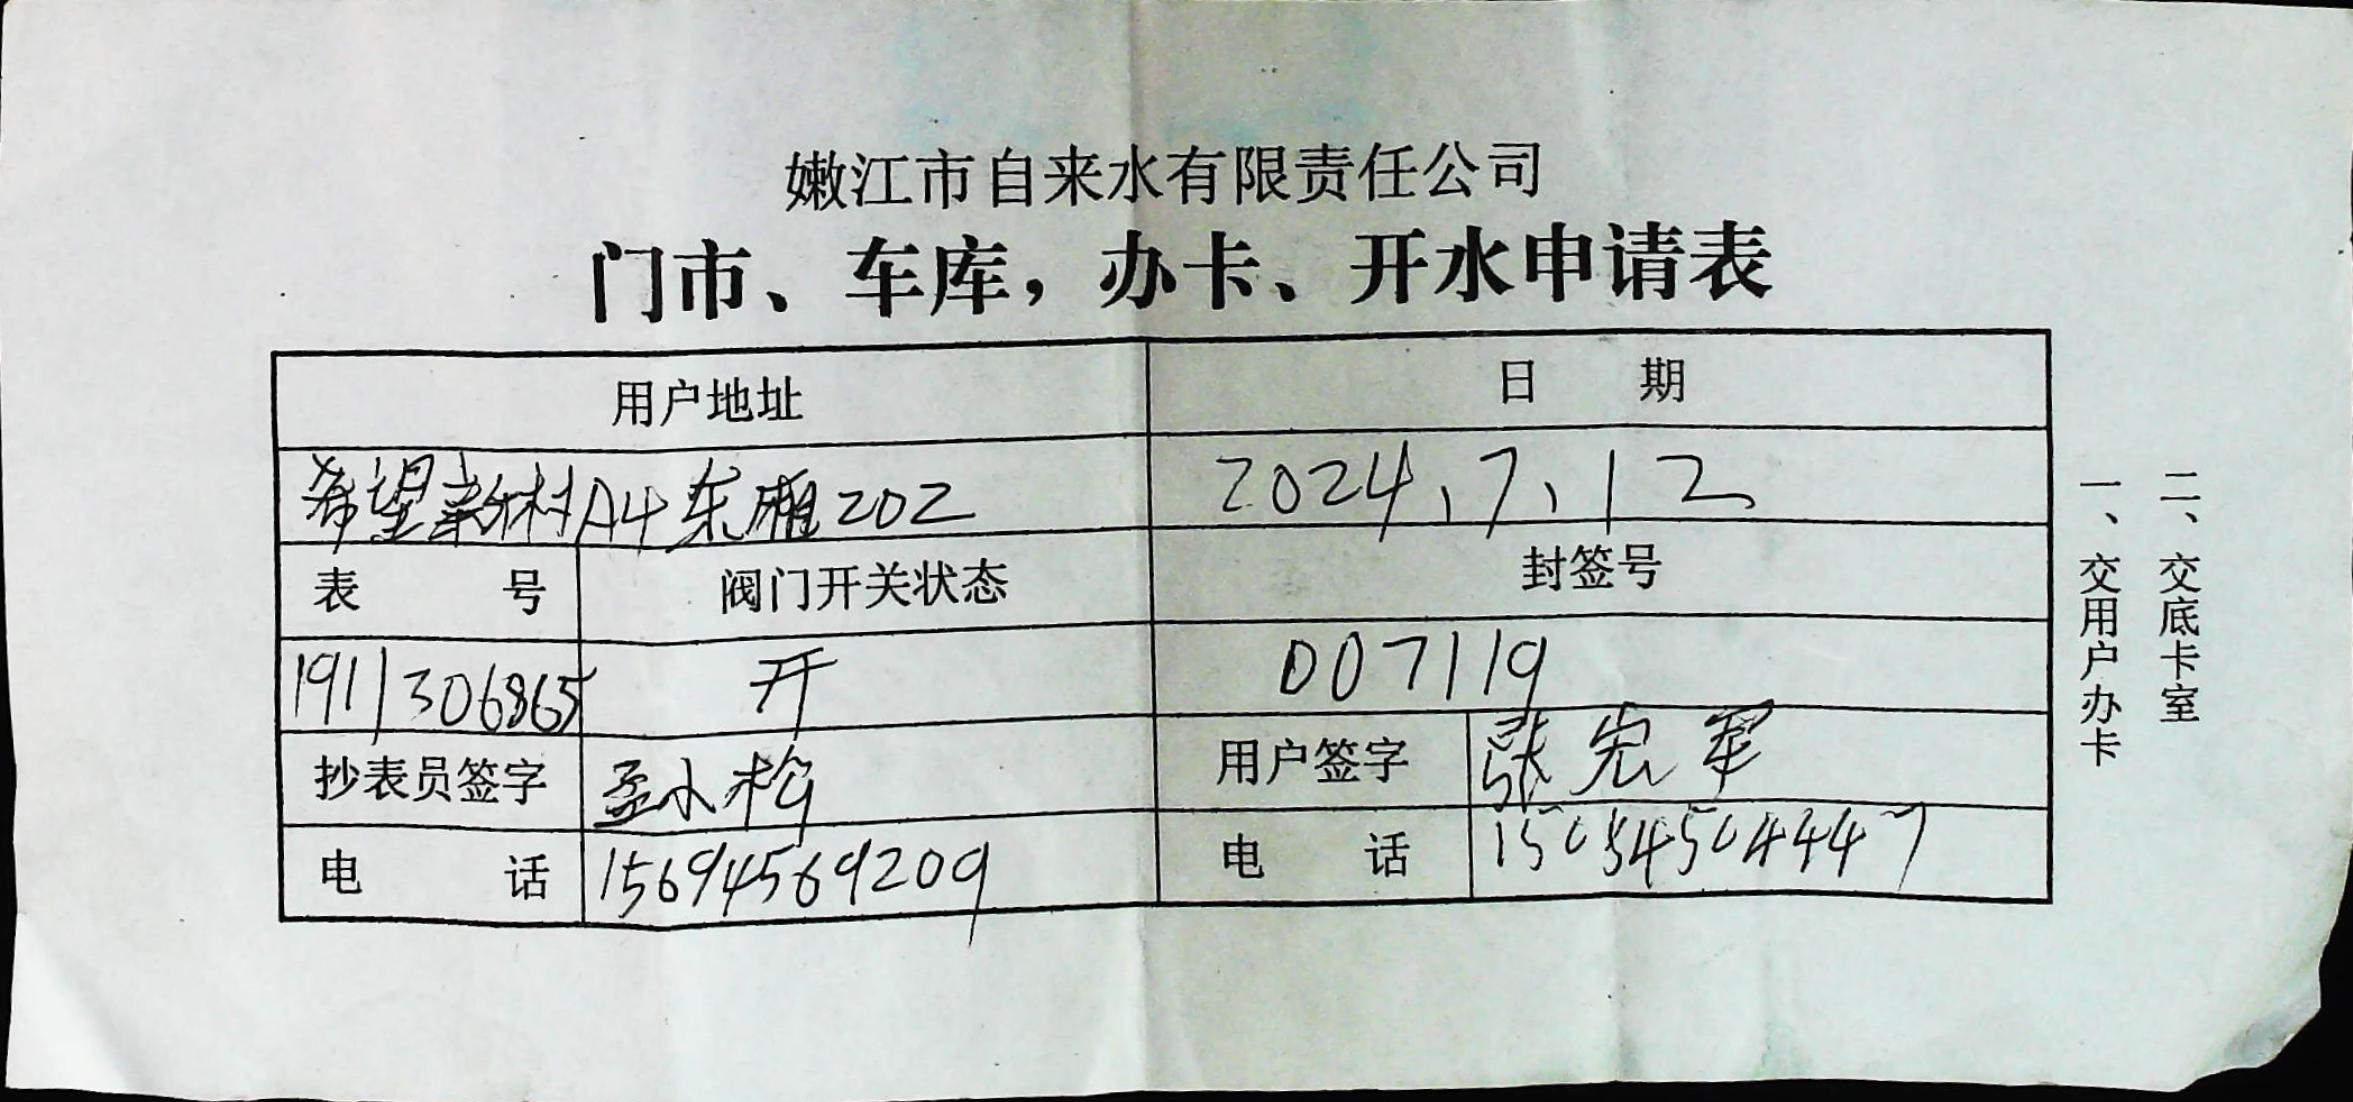 嫩江市自来水有限责任公司
门市、车库，办卡、开水申请表
用户地址 日 期
希望新村A4东厢202 2024、7、12
表 号 阀门开关状态 封签号
1911306865 开 007119
抄表员签字 孟小松 用户签字 张宏军
电 话 15694569209 电 话 15084504447
一、交用户办卡
二、交底卡室